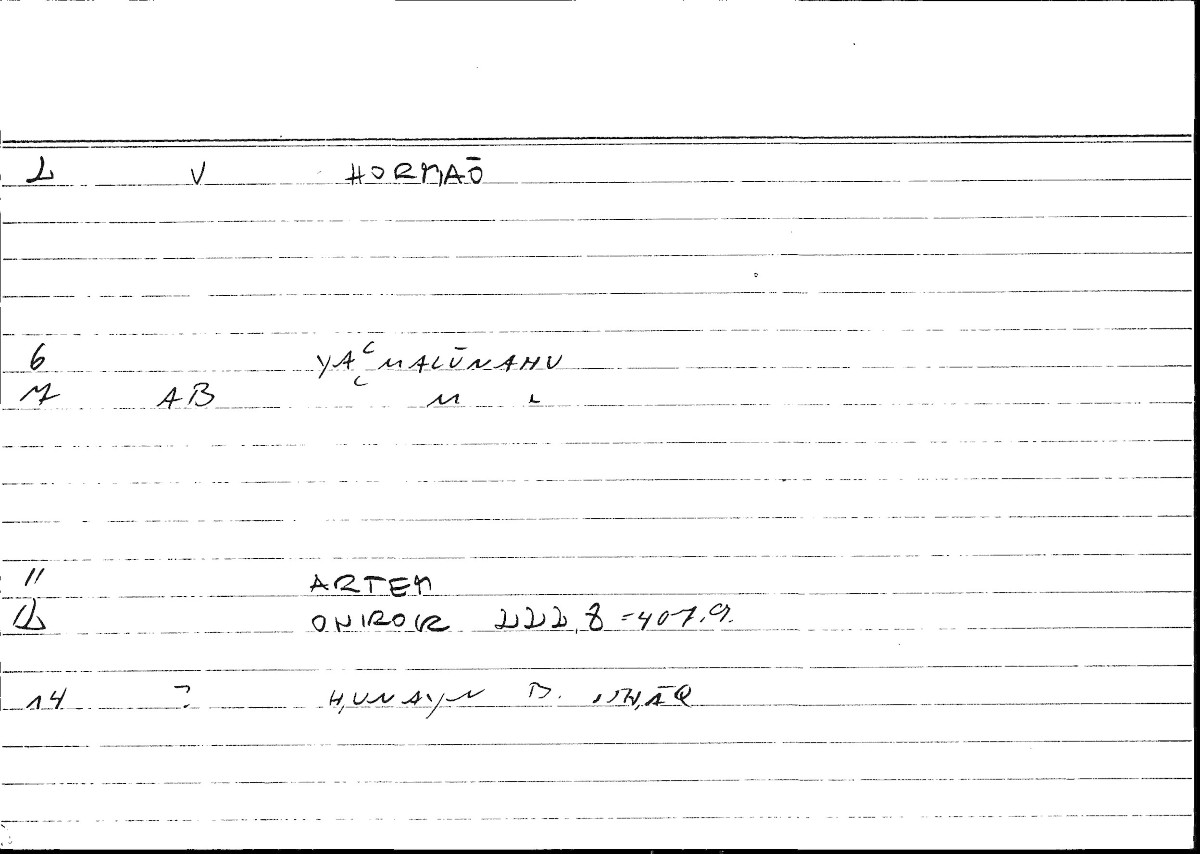 2 V HORMAŌ
6 YAʿMALŪNAHU
7 AB ʿ M L
11 ARTEM
12 ONIROCR 222,8 = 407,9.
14 ? ḤUNAYN B. ISḤĀQ